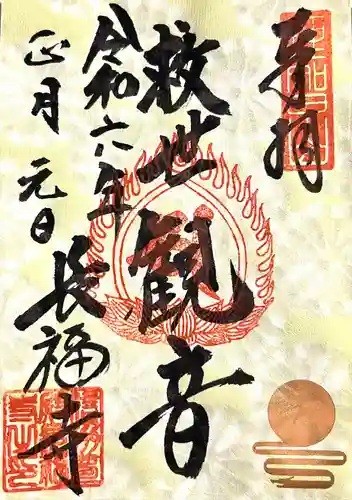 奉拝
救世観音
令和六年
正月元日
長福寺